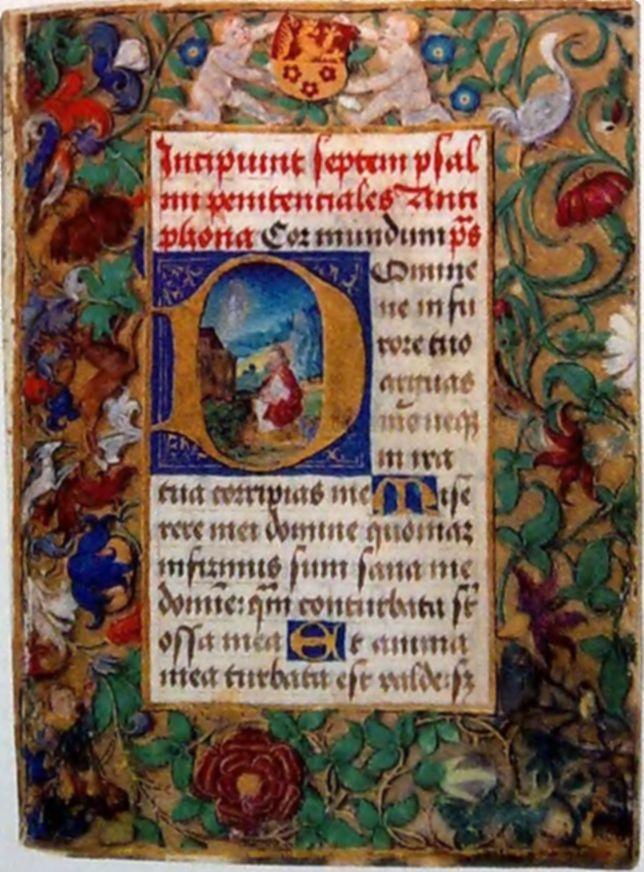 Incipiunt septem psal
mi penitenciales Anti
phona Cor mundum p̄s
Domine
ne in fu
rore tuo
arguas
me neqȝ
in ira
tua corripias me Mise
rere mei domine quoniaȝ
infirmus sum sana me
domie: qm̄ conturbata st̄
ossa mea Et anima
mea turbata est valde: sȝ